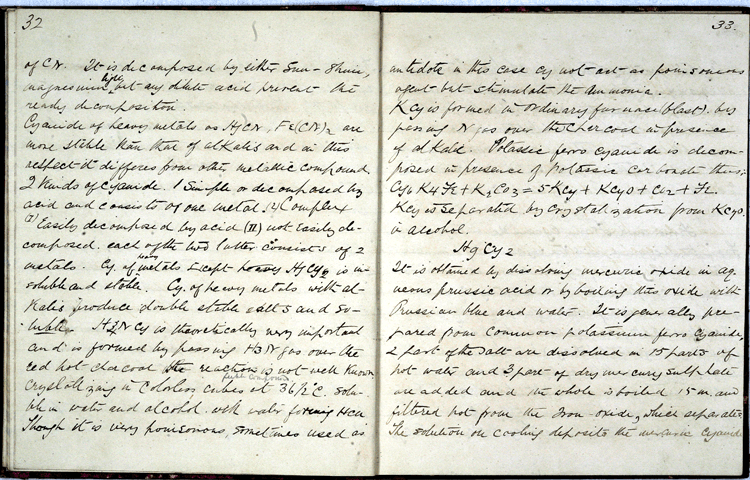 32
of CN. It is decomposed by either Sun-Shine,
magnesium light, but any dilute acid prevent the
ready decomposition.
Cyanide of heavy metals as HgCN, Fe(CN)2 are
more stable than that of alkalis and in this
respect it differes from other metallic compound.
2 Kinds of Cyanide. 1 Simple or decomposed by
acid and consists of one metal. (2) Complex
(I) Easily decomposed by acid (II) not Easily de-
composed. each of the two latter consists of 2
metals. Cy. of heavy metals Except HgCy2 is in-
soluble and stable. Cy. of heavy metals with al-
kalis produce double stable salts and so-
luble. H4NCy is theoretically very important
and is formed by passing H3N gas over the
red hot charcoal the reaction is not well known
crystallizing in Colorless cubes at 36/2°C. solu-
ble in water and alcohol. with water forming HCN
Though it is very poisonous, sometimes used as
33.
antidote in this case Cy not act as poisonous
agent but stimulate the Ammonia.
KCy is formed in ordinary furnace (blast). by
passing N gas over the Charcoal in presence
of alkali. Potassic ferro Cyanide is decom-
posed in presence of Potassic carbonate thus:
Cy6K4Fe + K2CO3 = 5KCy + KCyO + CO2 + Fe.
KCy is separated by Crystalization from KCyO.
in alcohol.
HgCy2
It is obtained by dissolving mercuric oxide in aq-
ueous prussic acid or by boiling this oxide with
Prussian blue and water. It is generally pre-
pared from common potassium ferro Cyanide,
2 part of the Salt are dissolved in 15 parts of
hot water and 3 part of dry mercury sulphate
are added and the whole is boiled 15 m. and
filtered hot from the Iron-oxide, which separates
The solution on cooling deposits the mercuric Cyanide